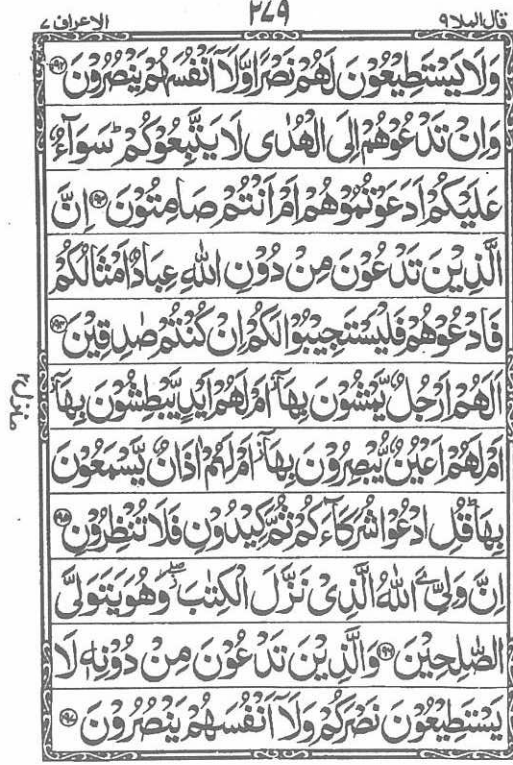 قال الملا ٩ ٢٤٩ الاعراف ٧
وَلَا يَسْتَطِيْعُوْنَ لَهُمْ نَصْرًا وَّلَاۤ اَنْفُسَهُمْ يَنْصُرُوْنَ ۝١٩٢
وَاِنْ تَدْعُوْهُمْ اِلَى الْهُدٰى لَا يَتَّبِعُوْكُمْ ؕ سَوَآءٌ
عَلَيْكُمْ اَدَعَوْتُمُوْهُمْ اَمْ اَنْتُمْ صَامِتُوْنَ ۝١٩٣ اِنَّ
الَّذِيْنَ تَدْعُوْنَ مِنْ دُوْنِ اللّٰهِ عِبَادٌ اَمْثَالُكُمْ
فَادْعُوْهُمْ فَلْيَسْتَجِيْبُوْا لَكُمْ اِنْ كُنْتُمْ صٰدِقِيْنَ ۝١٩٤
اَلَهُمْ اَرْجُلٌ يَّمْشُوْنَ بِهَاۤ ؗ اَمْ لَهُمْ اَيْدٍ يَّبْطِشُوْنَ بِهَاۤ ؗ
اَمْ لَهُمْ اَعْيُنٌ يُّبْصِرُوْنَ بِهَاۤ ؗ اَمْ لَهُمْ اٰذَانٌ يَّسْمَعُوْنَ
بِهَا ؕ قُلِ ادْعُوْا شُرَكَآءَكُمْ ثُمَّ كِيْدُوْنِ فَلَا تُنْظِرُوْنِ ۝١٩٥
اِنَّ وَلِيِّ ےَ اللّٰهُ الَّذِيْ نَزَّلَ الْكِتٰبَ ۖؗ وَهُوَ يَتَوَلَّى
الصّٰلِحِيْنَ ۝١٩٦ وَالَّذِيْنَ تَدْعُوْنَ مِنْ دُوْنِهٖ لَا
يَسْتَطِيْعُوْنَ نَصْرَكُمْ وَلَاۤ اَنْفُسَهُمْ يَنْصُرُوْنَ ۝١٩٧
منزل ٢